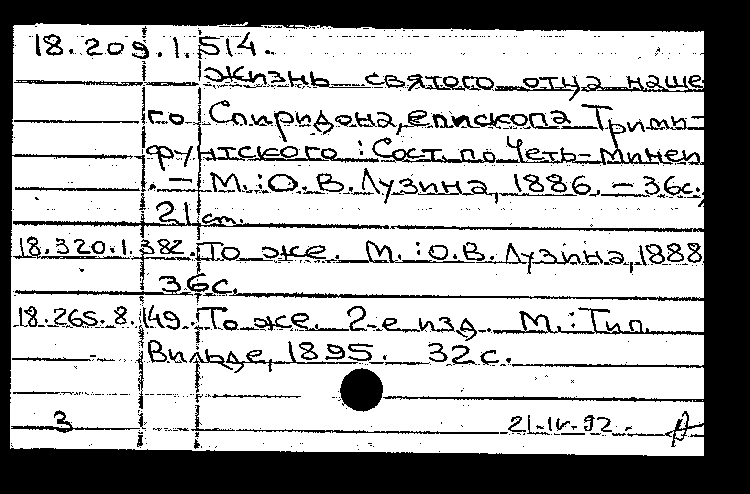 18.209.1.514.
Жизнь святого отца наше
го Спиридона, епископа Трими-
фунтского : Сост. по Четь-минеи
. – М. : О.В. Лузина, 1886. – 36с.,
21 cm.
18.320.1.382. То же. М. : О.В. Лузина, 1888
36с.
18.265.8.149. То же. 2-е изд. М. : Тип.
Вильде, 1895. 32с.
3 21-IV-92.